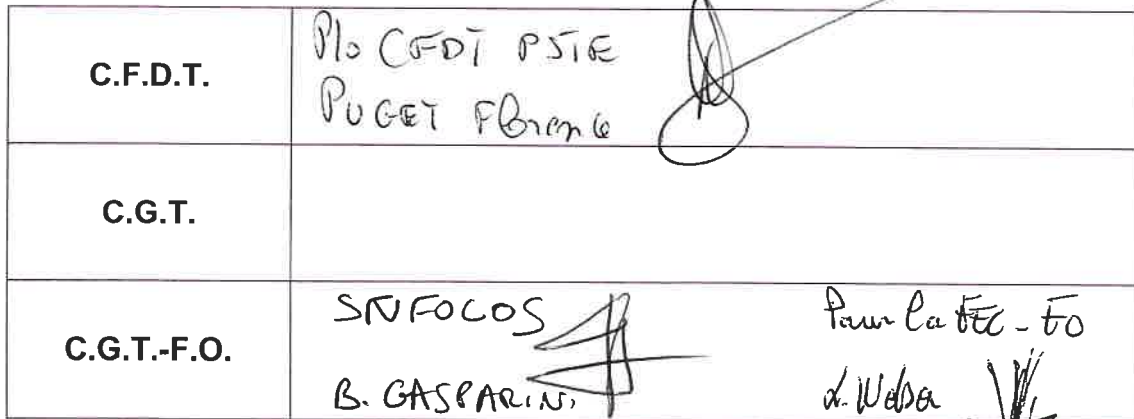 C.F.D.T.
P/o CFDT PSTE
PUGET Florence
C.G.T.
C.G.T.-F.O.
SNFOCOS
B. GASPARINI
Pour la FEC-FO